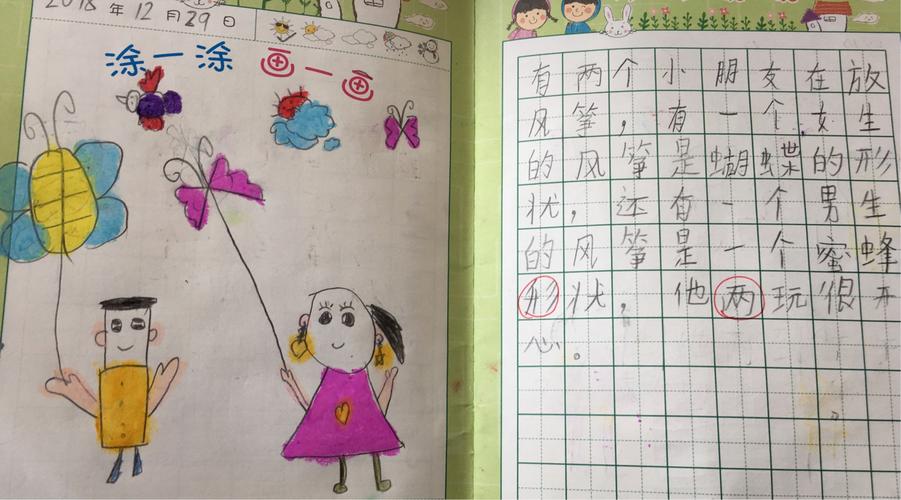 2018年12月29日
涂一涂 画一画
有两个小朋友在放
风筝，有一个女生
的风筝是蝴蝶的形
状，还有一个男生
的风筝是一个蜜蜂
形状，他两玩很开
心。